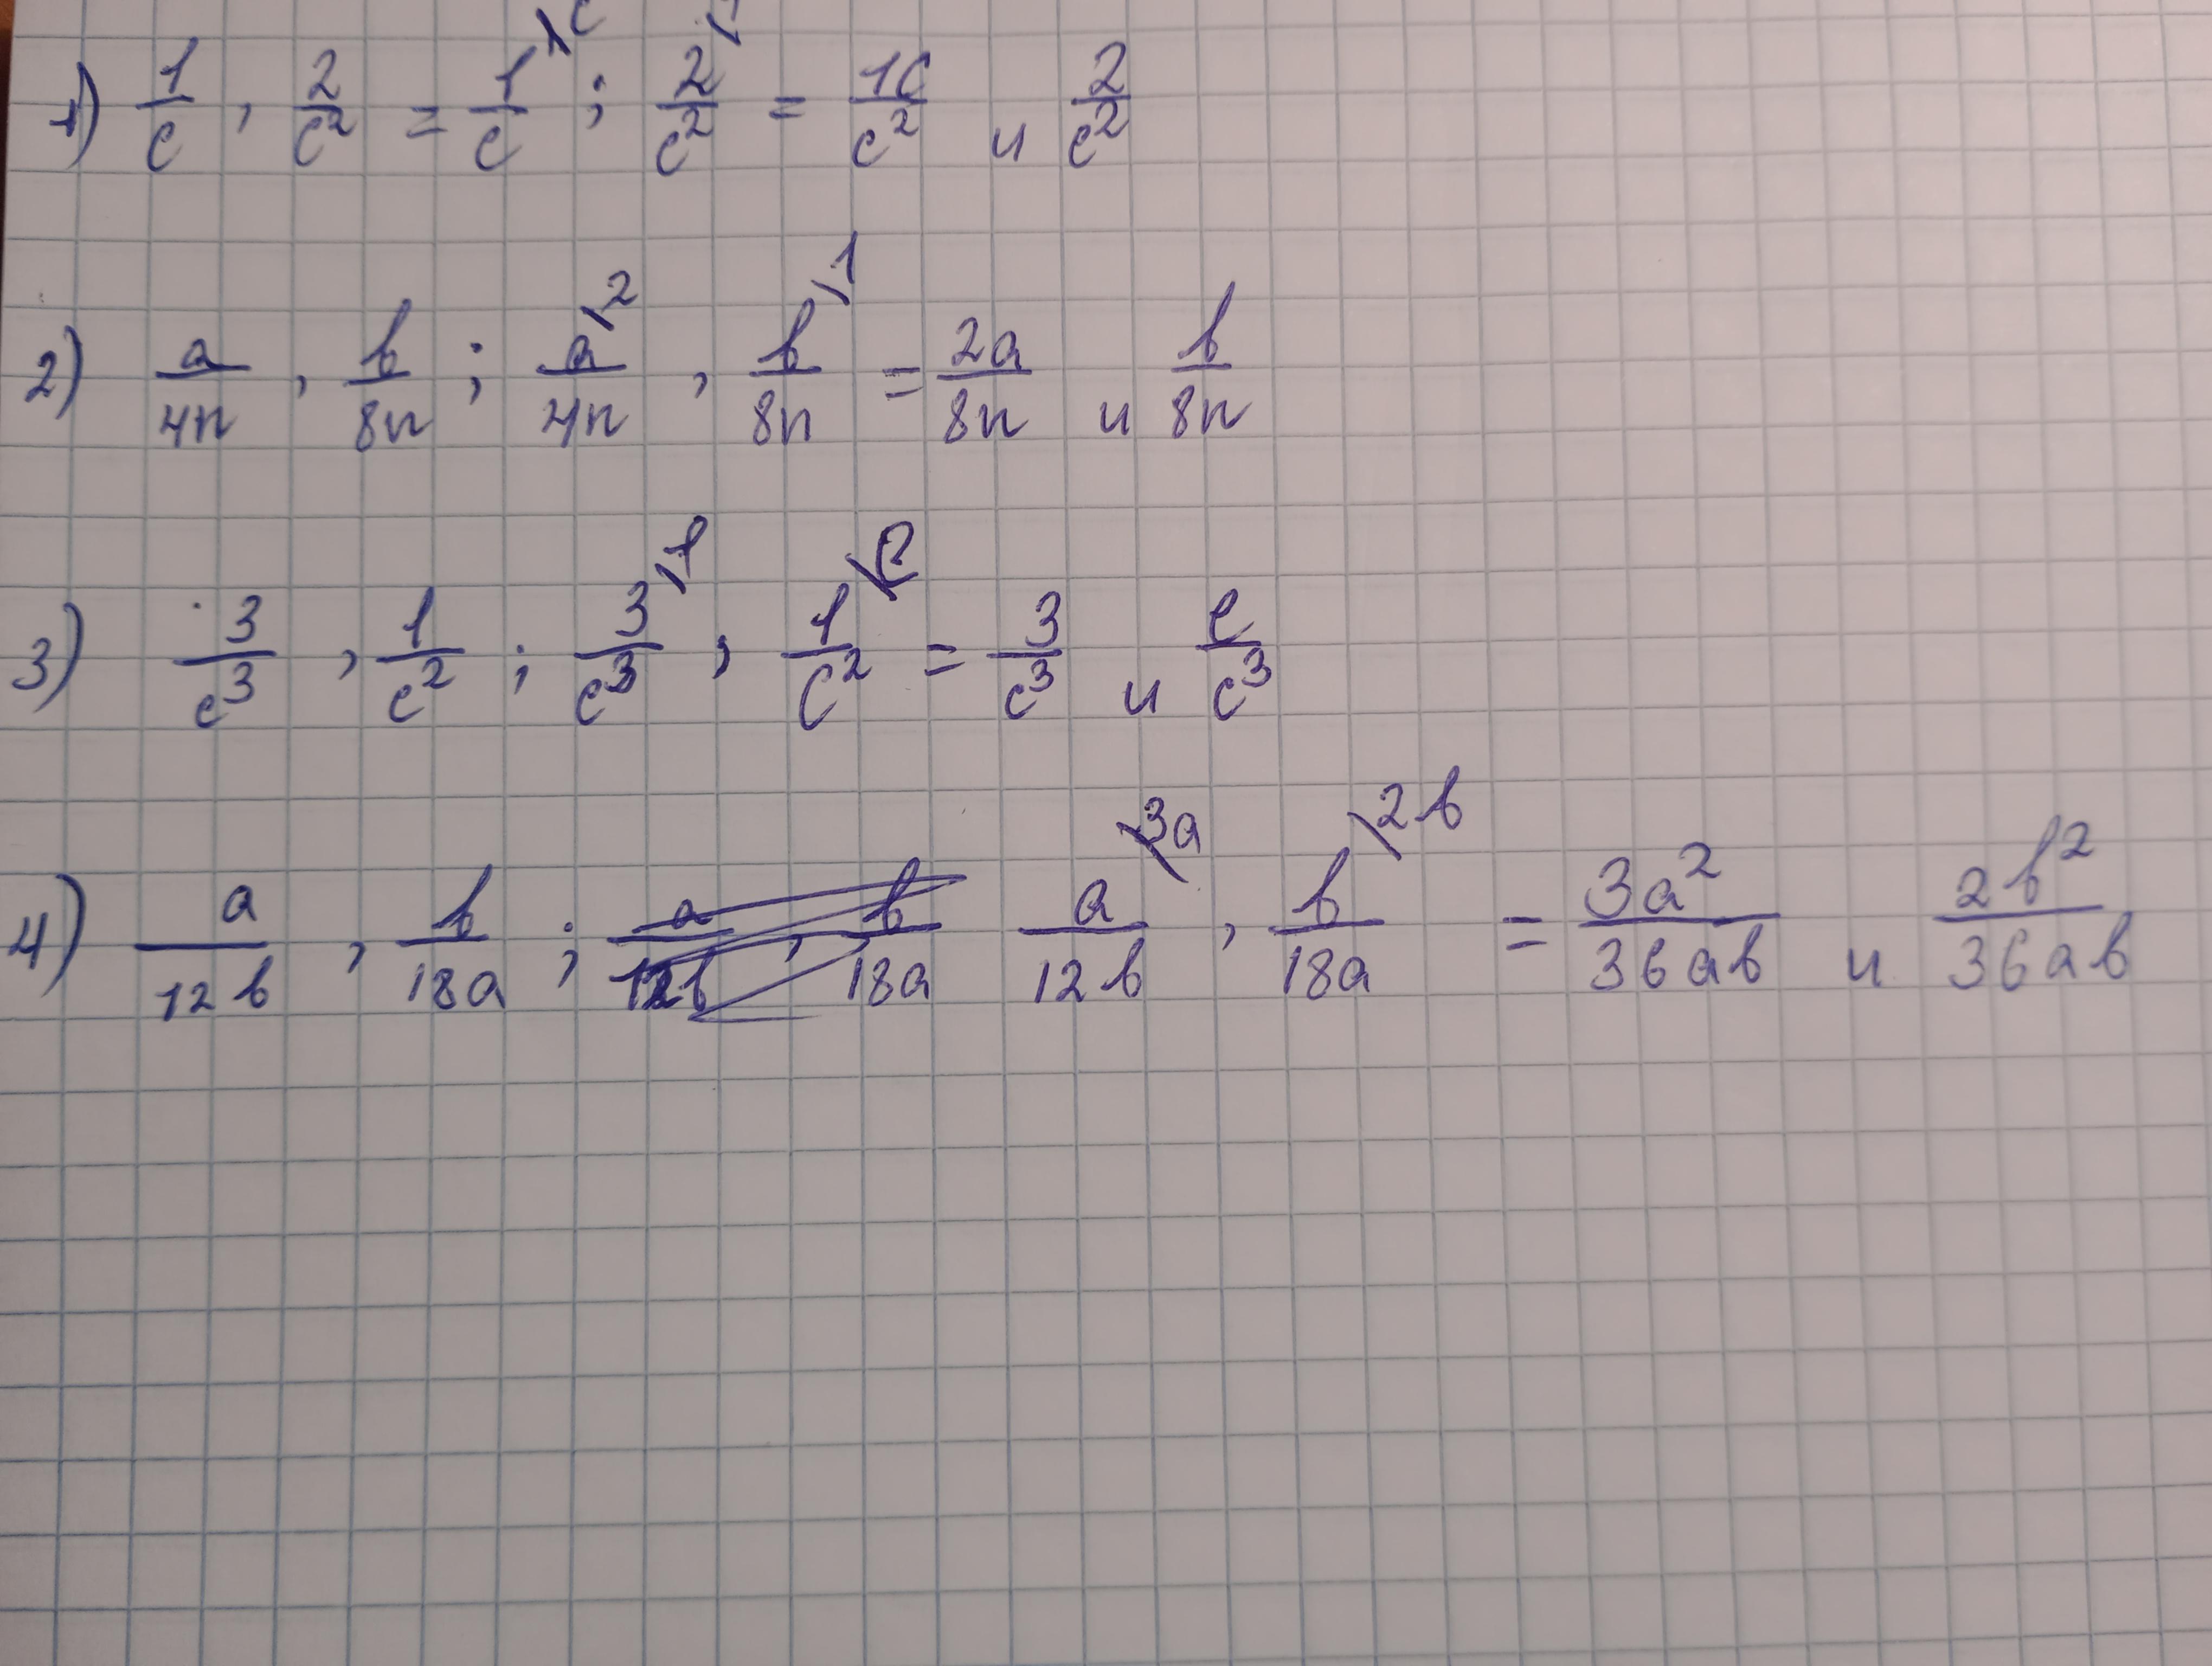 1) 1/c , 2/c² = 1/c \c ; 2/c² \ = 1c/c² и 2/c²
2) a/4n , b/8n ; a/4n \2 , b/8n \1 = 2a/8n и b/8n
3) 3/c³ , 1/c² ; 3/c³ \1 , 1/c² \c = 3/c³ и c/c³
4) a/12b , b/18a ; a/12b , b/18a a/12b \3a , b/18a \2b = 3a²/36ab и 2b²/36ab